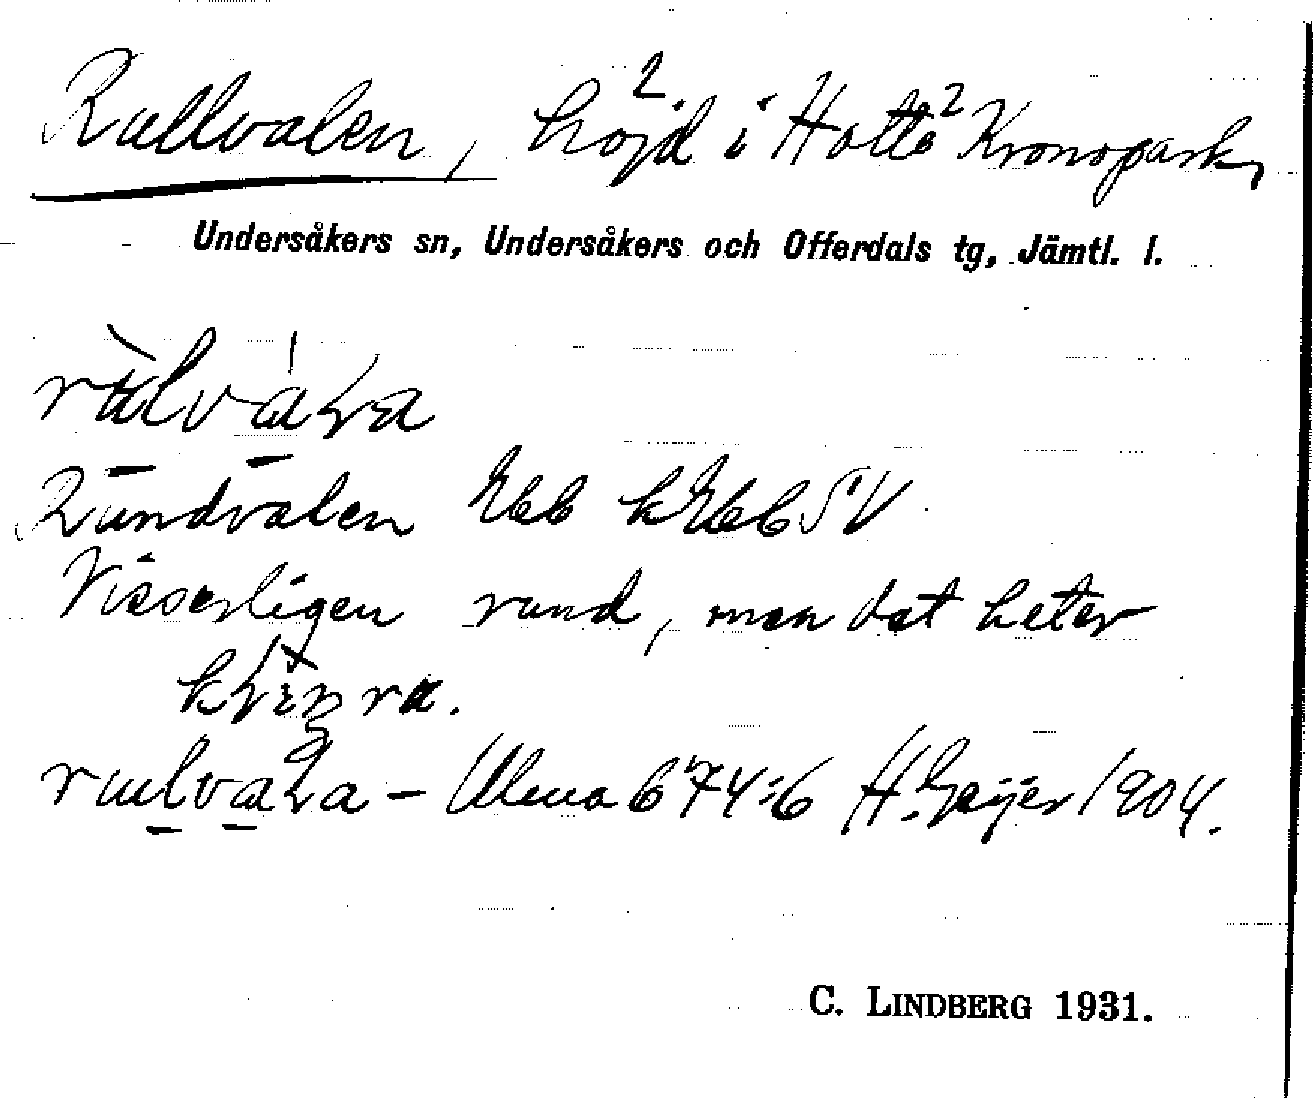 Rullvalen, höjd i Hottö Kronopark,
Undersåkers sn, Undersåkers och Offerdals tg, Jämtl. l.
Rundvalen Ebb kEbb SV
Visserligen rund, men det heter
Ulma 674:6 H. Geijer 1904.
C. LINDBERG 1931.